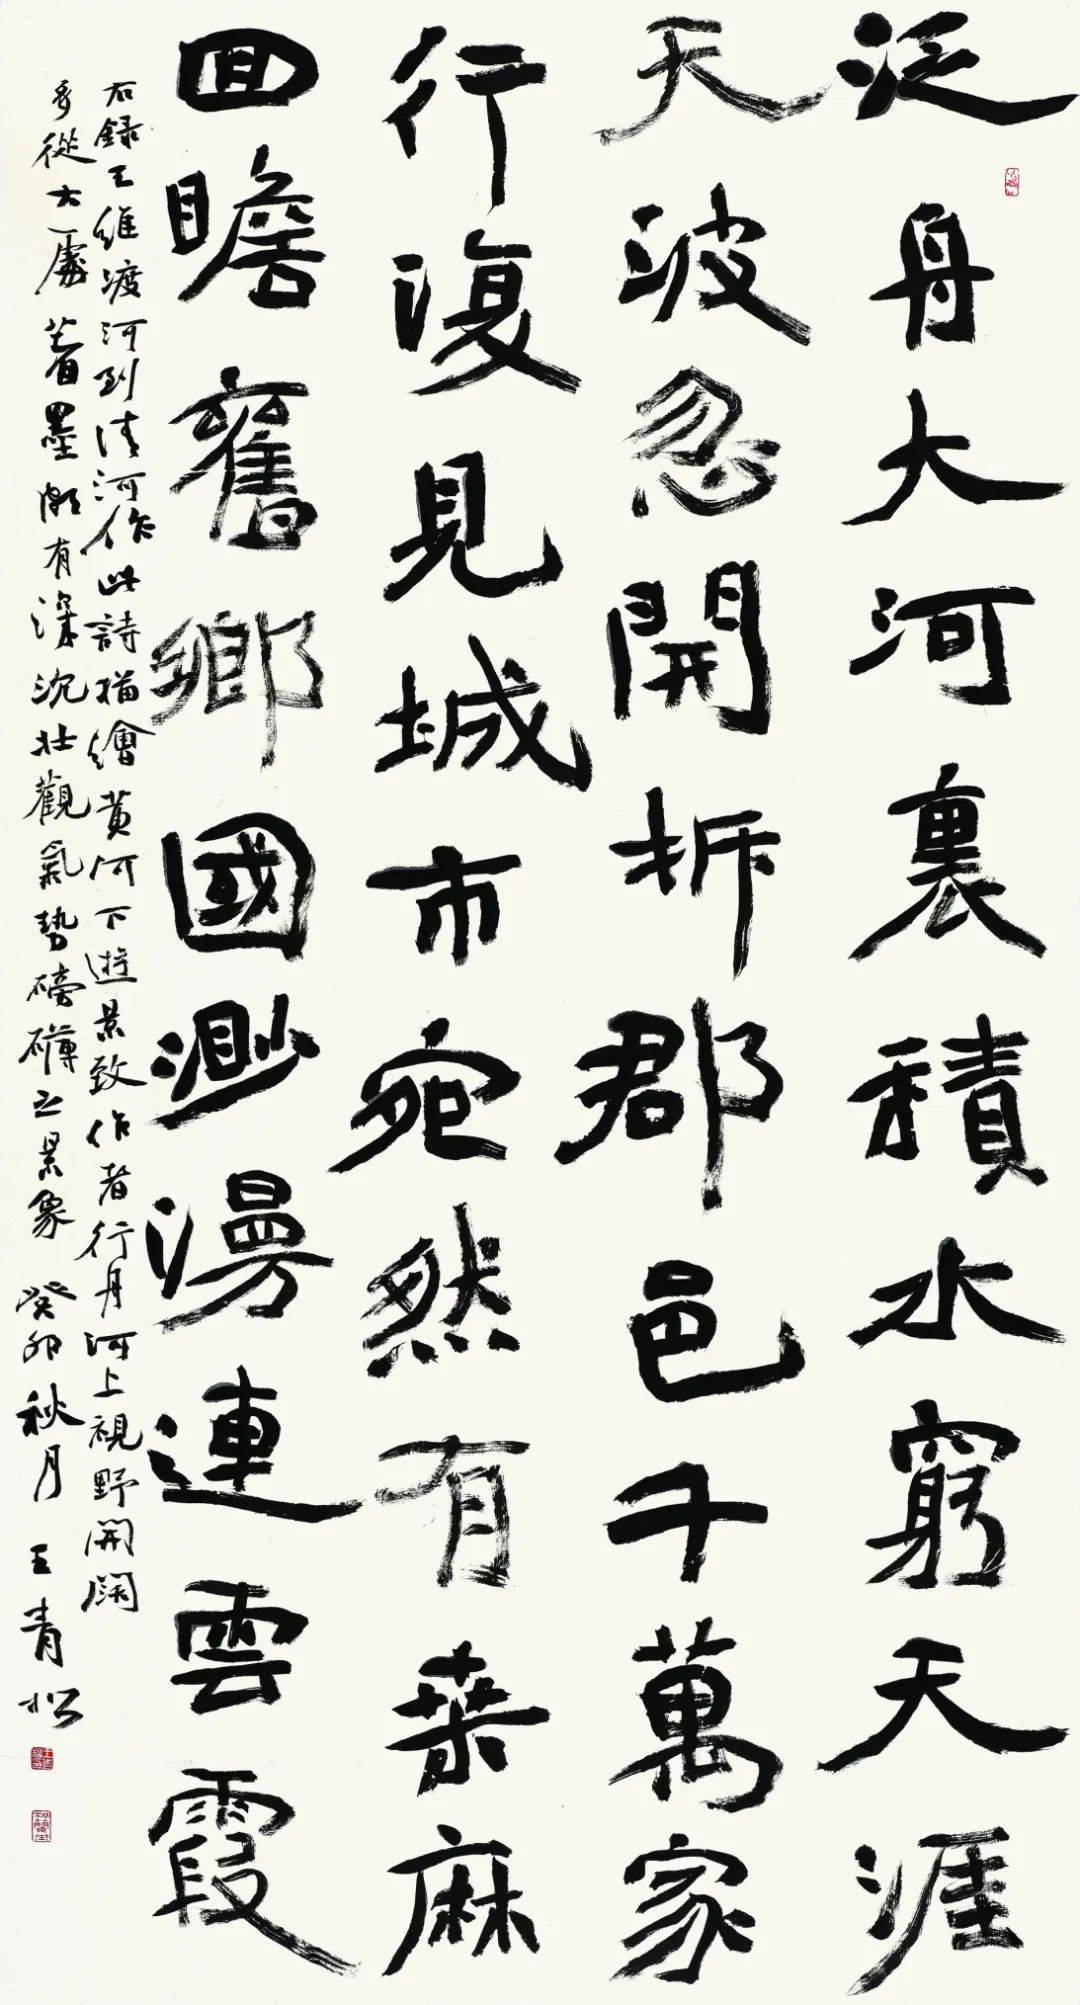 泛舟大河裏積水窮天涯
天波忽開拆郡邑千萬家
行復見城市宛然有桑麻
回瞻舊鄉國渺漫連雲霞
右錄王維渡河到清河作此詩描繪黃河下遊景致作者行舟河上視野開闊
多從大處著墨頗有深沈壯觀氣勢磅礴之景象 癸卯秋月 王青松